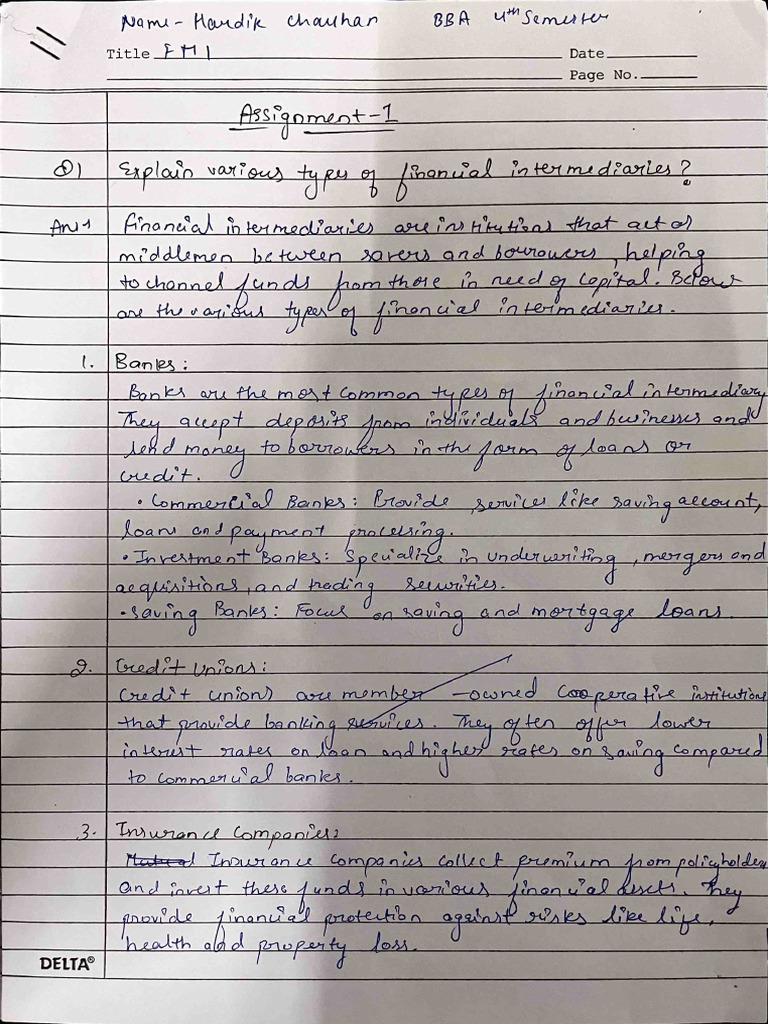 Name - Hardik Chauhan BBA 4th Semester
Title FMI Date
Page No.
Assignment-1
Q1 Explain various types of financial intermediaries?
Ans 1 Financial intermediaries are institutions that act as
middlemen between savers and borrowers, helping
to channel funds from those in need of capital. Below
are the various types of financial intermediaries.
1. Banks:
Banks are the most common types of financial intermediary
They accept deposits from individuals and businesses and
lend money to borrowers in the form of loans or
credit.
• Commercial Banks: Provide services like saving account,
loans and payment processing.
• Investment Banks: Specialize in underwriting, mergers and
acquisitions, and trading securities.
• Saving Banks: Focus on saving and mortgage loans.
2. Credit Unions:
Credit unions are member-owned Cooperative institutions
that provide banking services. They often offer lower
interest rates on loan and higher rates on saving compared
to commercial banks.
3. Insurance Companies:
Insurance Companies collect premium from policyholders
and invest these funds in various financial assets. They
provide financial protection against risks like life,
health and property loss.
DELTA®